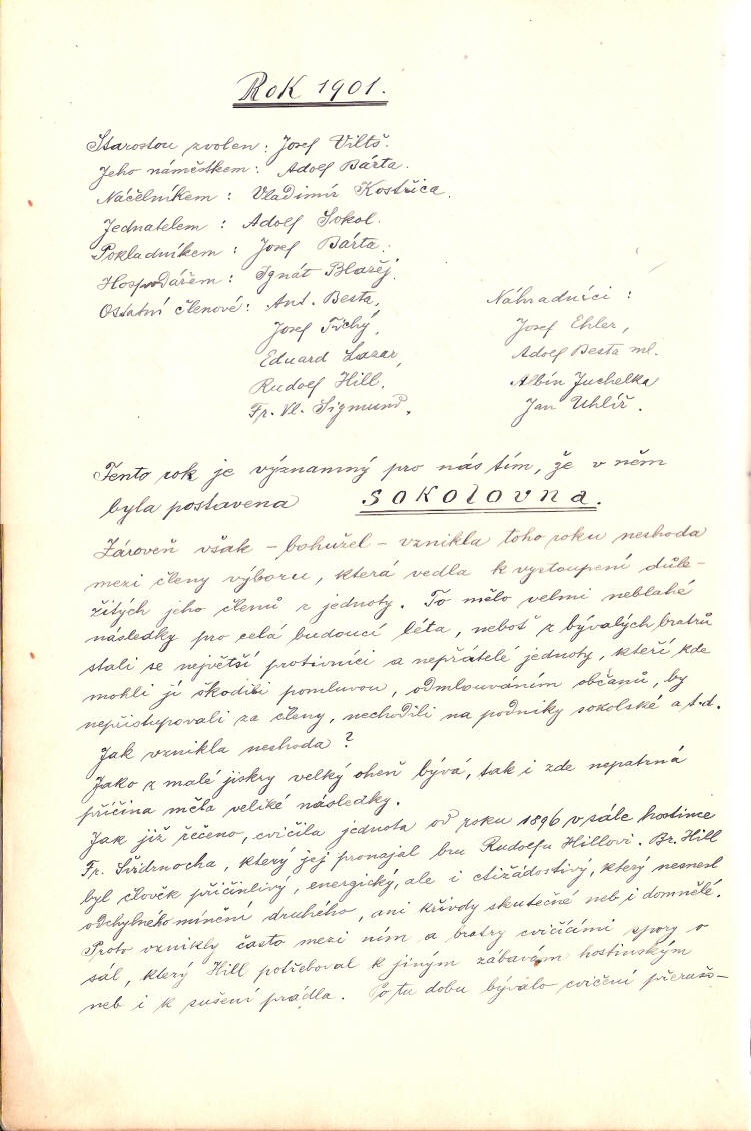 Rok 1901.
Starostou zvolen: Josef Viltš.
Jeho náměstkem: Adolf Bárta.
Náčelníkem: Vladimír Kostřica.
Jednatelem: Adolf Sokol.
Pokladníkem: Josef Bárta.
Hospodářem: Ignát Blažej.
Ostatní členové: Ant. Besta,
Josef Tichý,
Eduard Lazar,
Rudolf Hill.
Fr. Vl. Sigmund.
Náhradníci:
Josef Ehler,
Adolf Besta ml.
Albín Juchelka
Jan Uhlíř.
Tento rok je významný pro nás tím, že v něm
byla postavena sokolovna.
Zároveň však – bohužel – vznikla toho roku neshoda
mezi členy výboru, která vedla k vystoupení důle-
žitých jeho členů z jednoty. To mělo velmi neblahé
následky pro celá budoucí léta, neboť z bývalých bratrů
stali se největší protivníci a nepřátelé jednoty, kteří kde
mohli jí škodili pomluvou, odmlouváním občanů, by
nepřistupovali za členy, nechodili na podniky sokolské a t.d.
Jak vznikla neshoda?
Jako z malé jiskry velký oheň bývá, tak i zde nepatrná
příčina měla veliké následky.
Jak již řečeno, cvičila jednota od roku 1896 v sále hostince
Fr. Švidrnocha, který jej pronajal bru Rudolfu Hillovi. Br. Hill
byl člověk přičinlivý, energický, ale i ctižádostivý, který nesnesl
odchylného mínění druhého, ani křivdy skutečné neb i domnělé.
Proto vznikly často mezi ním a bratry cvičícími spory o
sál, který Hill potřeboval k jiným zábavám hostinským
neb i k sušení prádla. Po tu dobu bývalo cvičení přeruš-